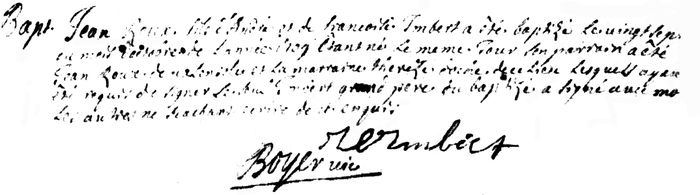 Bapt. Jean Roux fils d'André et de françoise Imbert a été baptizé le vingt sep
du mois d'octobre de l'année 1709 étant né le meme jour son parrain a été
Jean Roux de et la marraine thereze de ce lieu lesquels ayan
été requis de signer grand pere du baptizé a signé avec mo
les autres ne sçachant écrire de ce enquis
Imbert
Boyer vic